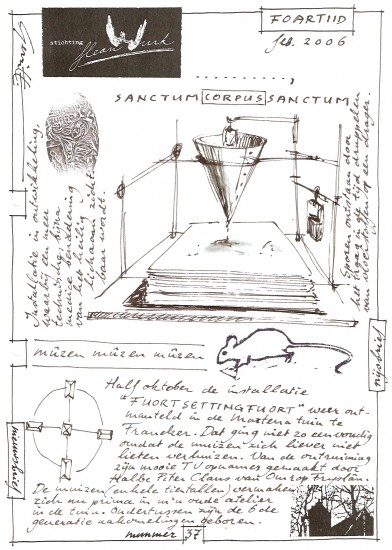 stichting
FOARTIID
feb. 2006
SANCTUM CORPUS SANCTUM
Installatie in ontwikkeling,
waarbij een meer
eenvoudige bijna
van het heilig
lichaam zicht-
baar wordt.
Sporen ontstaan door
het traag in de tijd druppelen
van vloeistoffen op een drager.
mûzen mûzen mûzen
nijsbrief
Half oktober de installatie
"FUORTSETTINGFUORT" weer ont-
manteld in de Martenatuin te
Franeker. Dat ging niet zo eenvoudig
omdat de muizen zich liever niet
lieten verhuizen. Van de ontruiming
zijn mooie TV opnames gemaakt door
Halbe Piter Claus van Omrop Fryslân.
De muizen (enkele tientallen) vermaken
zich nu prima in m'n oude atelier
in de tuin. Ondertussen zijn de 6de
generatie nakomelingen geboren.
nummer 37